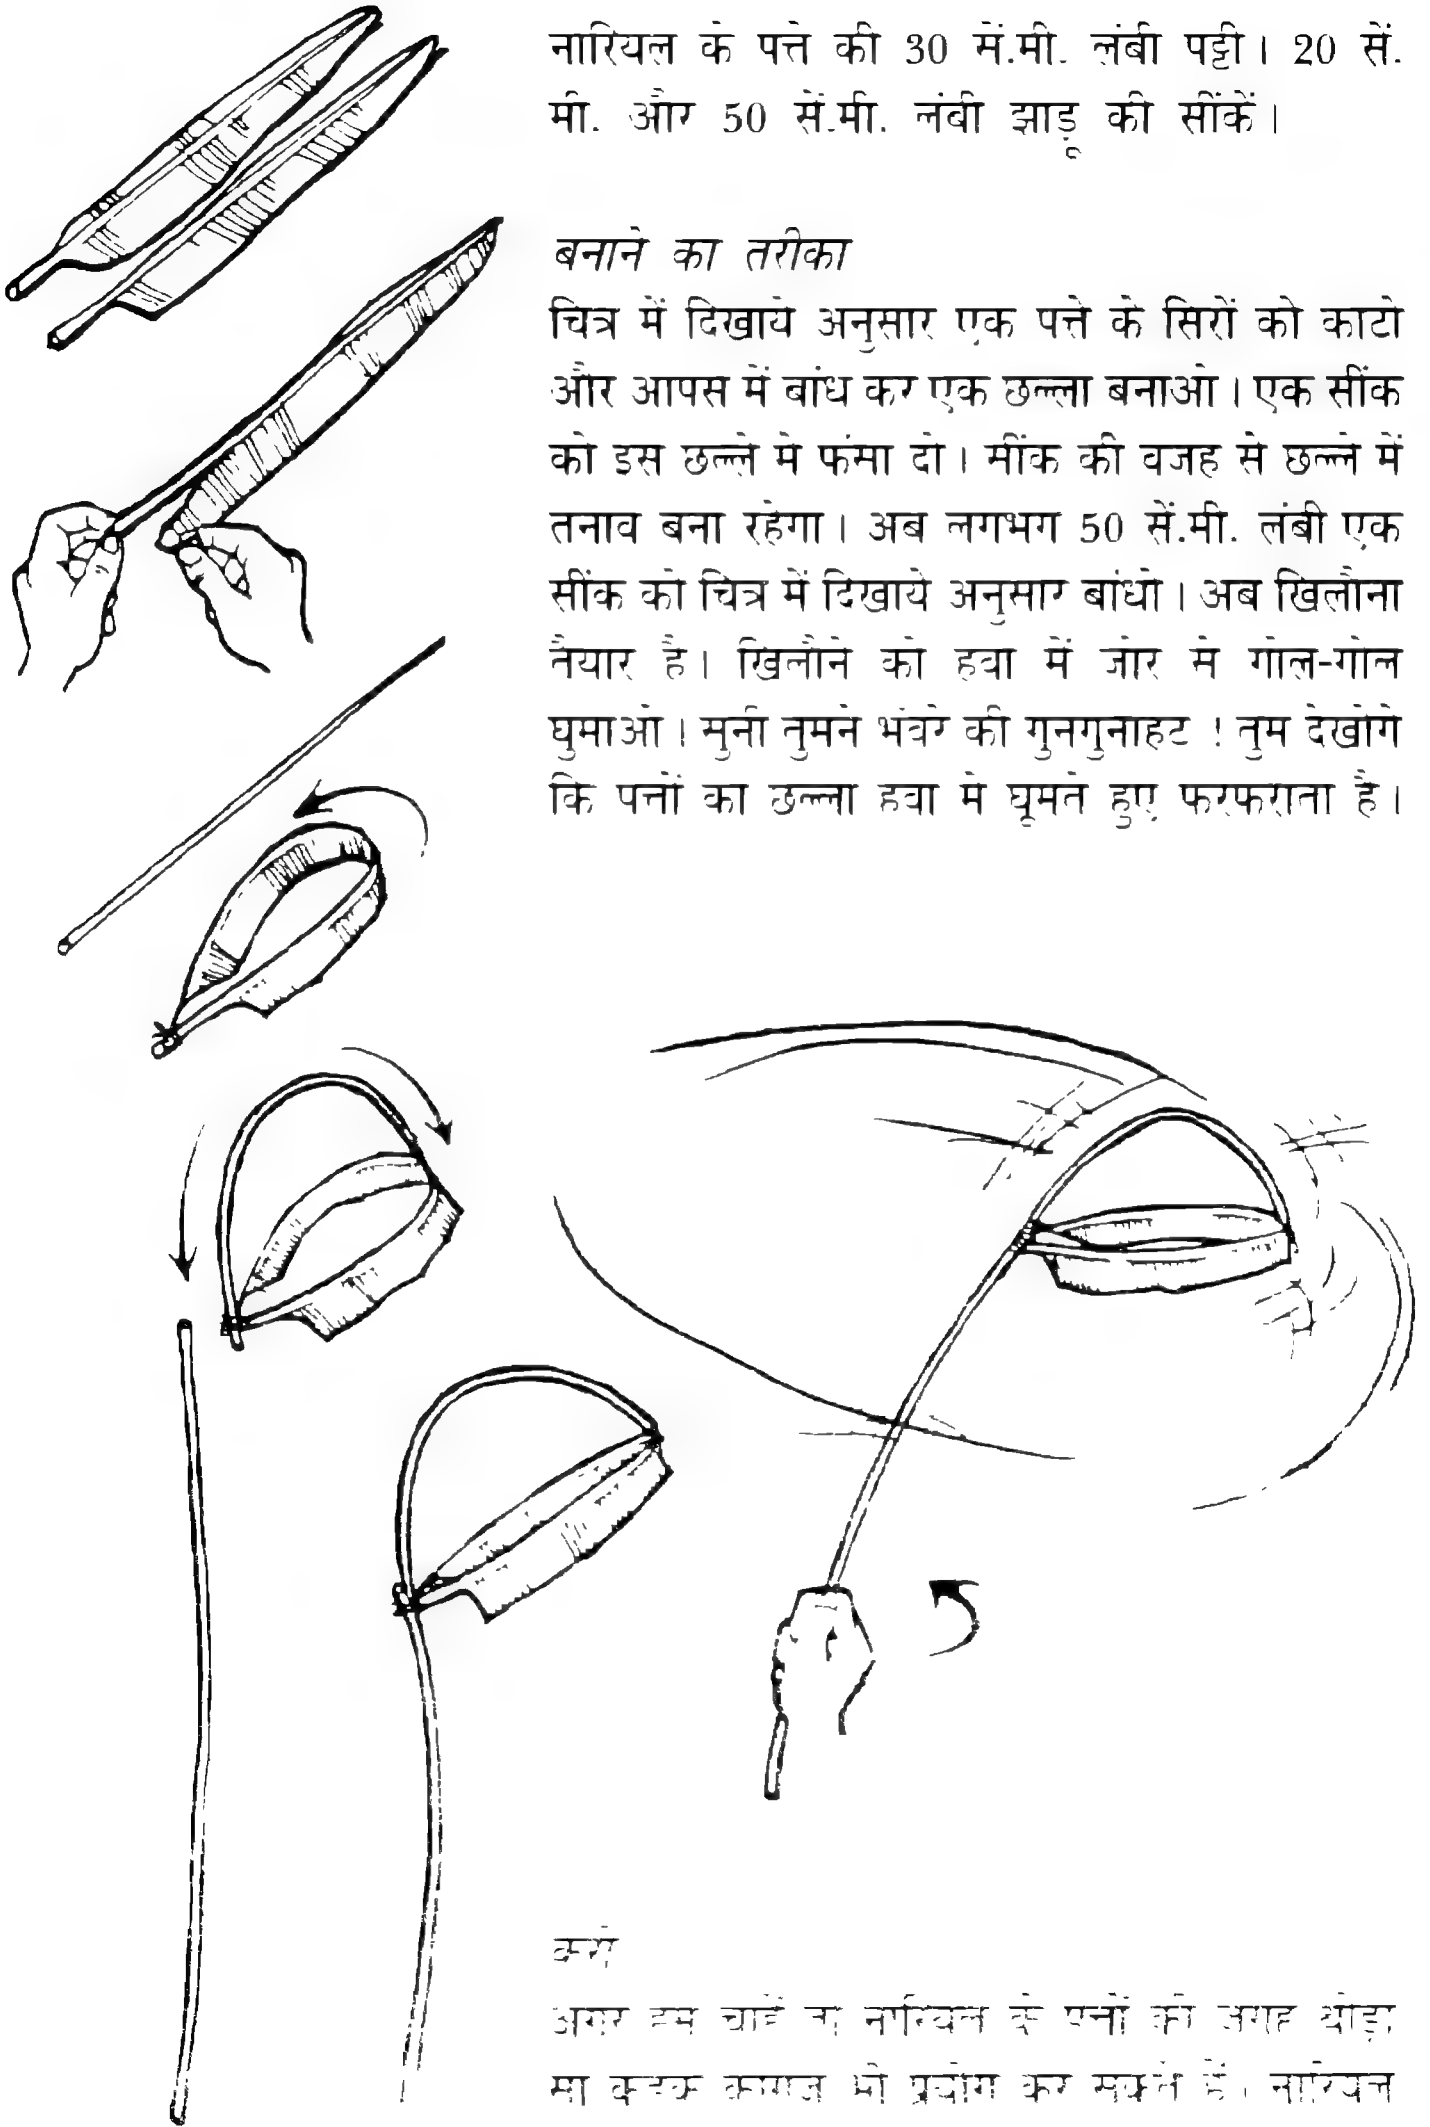 नारियल के पत्ते की 30 सें.मी. लंबी पट्टी। 20 सें.
मी. और 50 सें.मी. लंबी झाड़ू की सींकें।
बनाने का तरीका
चित्र में दिखाये अनुसार एक पत्ते के सिरों को काटो
और आपस में बांध कर एक छल्ला बनाओ। एक सींक
को इस छल्ले में फंसा दो। सींक की वजह से छल्ले में
तनाव बना रहेगा। अब लगभग 50 सें.मी. लंबी एक
सींक को चित्र में दिखाये अनुसार बांधो। अब खिलौना
तैयार है। खिलौने को हवा में जोर से गोल-गोल
घुमाओ। सुनी तुमने भंवरे की गुनगुनाहट ! तुम देखोगे
कि पत्तों का छल्ला हवा में घूमते हुए फरफराता है।
करो
अगर हम चाहें तो नारियल के पत्तों की जगह थोड़ा
सा कड़क कागज भी प्रयोग कर सकते हैं। नारियल